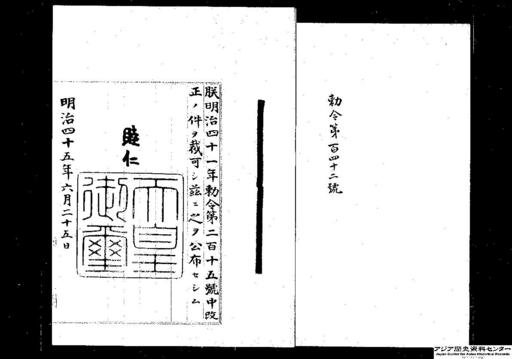 勅令第百四十二號
朕明治四十一年勅令第二百十五號中改
正ノ件ヲ裁可シ茲ニ之ヲ公布セシム
睦仁
天皇
御璽
明治四十五年六月二十五日
アジア歴史資料センター
Japan Center for Asian Historical Records